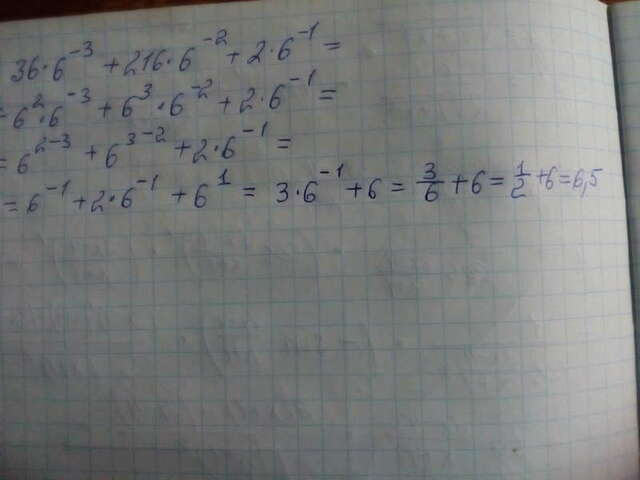 36·6⁻³ + 216·6⁻² + 2·6⁻¹ =
= 6²·6⁻³ + 6³·6⁻² + 2·6⁻¹ =
= 6²⁻³ + 6³⁻² + 2·6⁻¹ =
= 6⁻¹ + 2·6⁻¹ + 6¹ = 3·6⁻¹ + 6 = 3/6 + 6 = 1/2 + 6 = 6,5